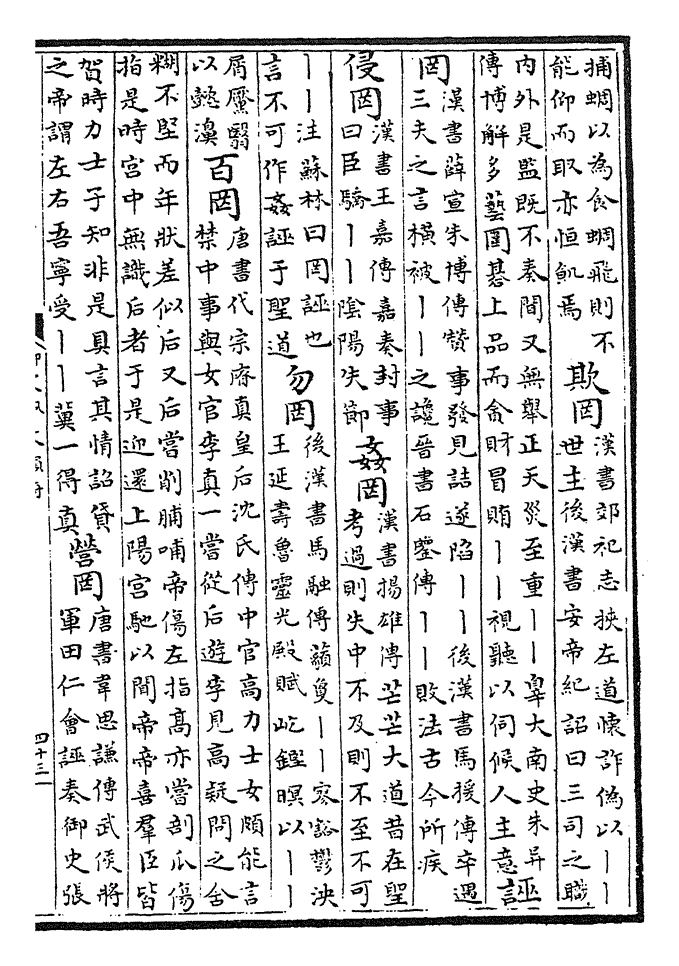 捕蜩以為食蜩飛則不
能仰而取亦恒飢焉
欺罔
漢書郊祀志挾左道懷詐偽以丨丨
世主後漢書安帝紀詔曰三司之職
内外是監既不奏聞又無舉正天災至重丨丨辠大南史朱异
傳博解多藝圍碁上品而貪財冒賄丨丨視聽以伺候人主意
誣
罔
漢書薛宣朱博傳贊事發見詰遂陷丨丨後漢書馬援傳卒遇
三夫之言橫被丨丨之讒晉書石鑒傳丨丨敗法古今所疾
侵罔
漢書王嘉傳嘉奏封事
曰臣驕丨丨陰陽失節
姦罔
漢書揚雄傳芒芒大道昔在聖
考過則失中不及則不至不可
丨丨注蘇林曰罔誣也
言不可作姦誣于聖道
勿罔
後漢書馬融傳蘋敻丨丨寥豁鬱泱
王延壽魯靈光殿賦屹鏗暝以丨丨
屑黶翳
以懿濞
百罔
唐書代宗睿真皇后沈氏傳中官高力士女頗能言
禁中事與女官李真一嘗從后遊李見高疑問之含
糊不堅而年狀差似后又后嘗削脯哺帝傷左指高亦嘗剖瓜傷
指是時宮中無識后者于是迎還上陽宮馳以聞帝帝喜羣臣皆
賀時力士子知非是具言其情詔貸
之帝謂左右吾寧受丨丨冀一得真
營罔
唐書韋思謙傳武侯將
軍田仁會誣奏御史張
四十三